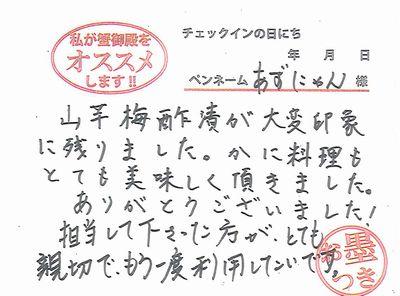 私が蟹御殿を
オススメ
します!!
チェックインの日にち
年 月 日
ペンネーム あずにゃん 様
山芋梅酢漬が大変印象
に残りました。かに料理も
とても美味しく頂きました。
ありがとうございました!
担当して下さった方が、とても
親切で、もう一度利用したいです。
お墨
つき